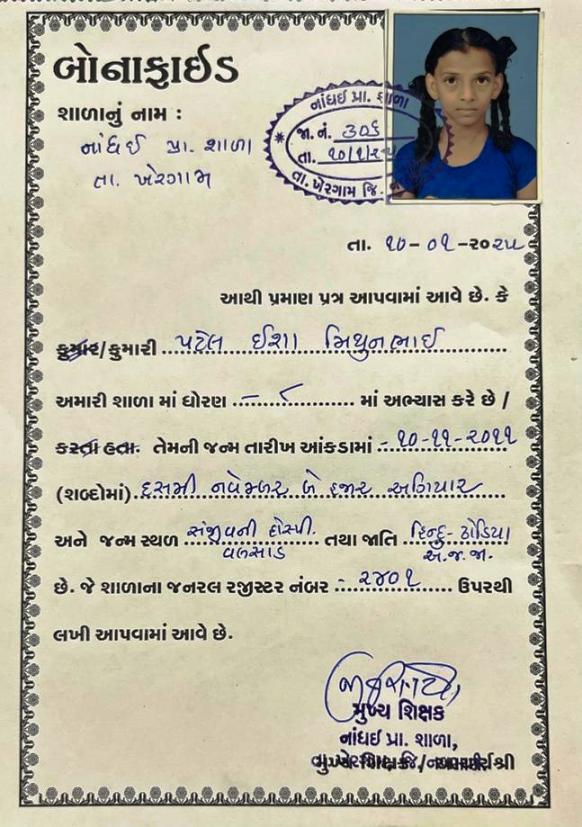 બોનાફાઈડ
શાળાનું નામ :
નાંધઈ પ્રા. શાળા
તા. ખેરગામ
નાંધઈ પ્રા. શાળા
જા. નં. ૩૦૬
તા. ૧૦/૧/૨૫
તા. ખેરગામ જિ.
તા. ૧૦-૦૧-૨૦૨૫
આથી પ્રમાણ પત્ર આપવામાં આવે છે. કે
કુમાર/કુમારી પટેલ ઈશા મિથુનભાઈ
અમારી શાળા માં ધોરણ - ૮ માં અભ્યાસ કરે છે /
કરતા હતા. તેમની જન્મ તારીખ આંકડામાં - ૧૦-૧૧-૨૦૧૧
(શબ્દોમાં) દસમી નવેમ્બર બે હજાર અગિયાર
અને જન્મ સ્થળ સંજીવની હોસ્પી. વલસાડ તથા જાતિ હિન્દુ-ઢોડિયા અ.જ.જા.
છે. જે શાળાના જનરલ રજીસ્ટર નંબર - ૨૪૦૧ ઉપરથી
લખી આપવામાં આવે છે.
મુખ્ય શિક્ષક
નાંધઈ પ્રા. શાળા,